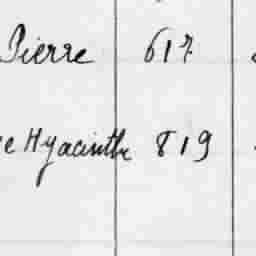 Pierre 617
Hyacinthe 819